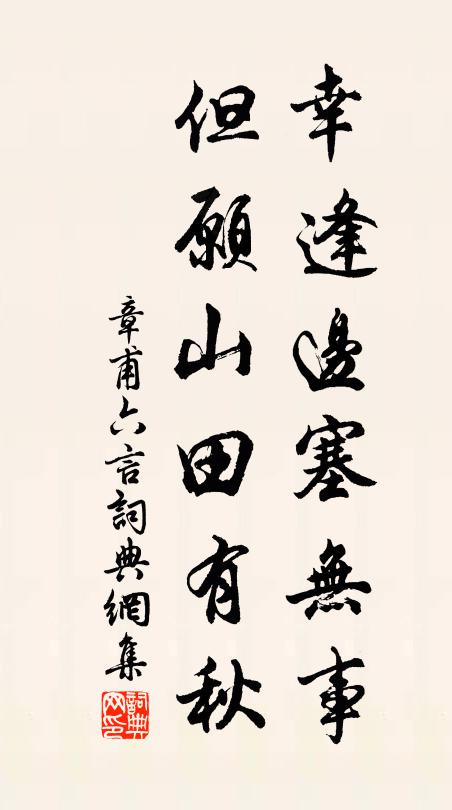 幸逢邊塞無事
但願山田有秋
章甫六言詞典網集
詞典
网印